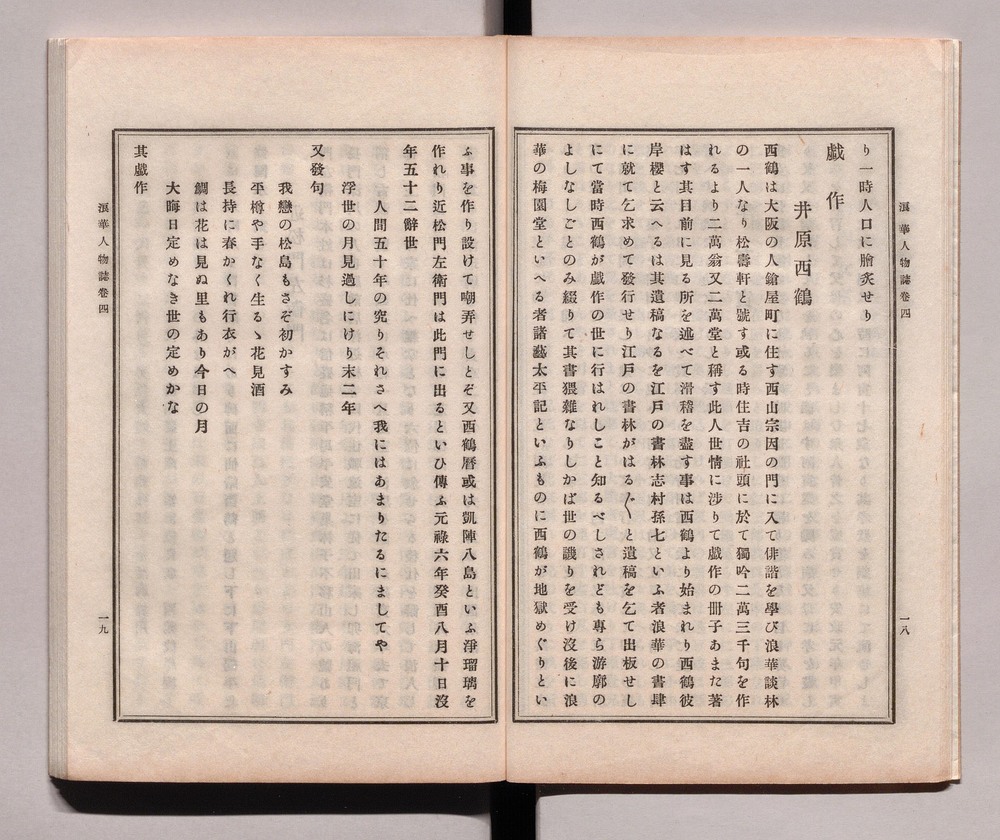 浪華人物誌卷四
一八
り一時人口に膾炙せり
戯作
井原西鶴
西鶴は大阪の人鎗屋町に住す西山宗因の門に入て俳諧を學び浪華談林
の一人なり松壽軒と號す或る時住吉の社頭に於て獨吟二萬三千句を作
れるより二萬翁又二萬堂と稱す此人世情に渉りて戯作の冊子あまた著
はす其目前に見る所を述べて滑稽を盡す事は西鶴より始まれり西鶴彼
岸櫻と云へるは其遺稿なるを江戸の書林志村孫七といふ者浪華の書肆
に就て乞求めて發行せり江戸の書林がはる〱と遺稿を乞て出板せし
にて當時西鶴が戯作の世に行はれしこと知るべしされども專ら游廓の
よしなしごとのみ綴りて其書猥雜なりしかば世の譏りを受け沒後に浪
華の梅園堂といへる者諸藝太平記といふものに西鶴が地獄めぐりとい
ふ事を作り設けて嘲弄せしとぞ又西鶴曆或は凱陣八島といふ淨瑠璃を
作れり近松門左衛門は此門に出るといひ傳ふ元祿六年癸酉八月十日沒
年五十二辭世
人間五十年の究りそれさへ我にはあまりたるにましてや
浮世の月見過しにけり末二年
又發句
我戀の松島もさぞ初かすみ
平樽や手なく生るゝ花見酒
長持に春かくれ行衣がへ
鯛は花は見ぬ里もあり今日の月
大晦日定めなき世の定めかな
其戯作
浪華人物誌卷四
一九